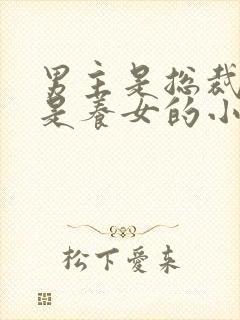 男主是总裁
是养女的小
松下爱来